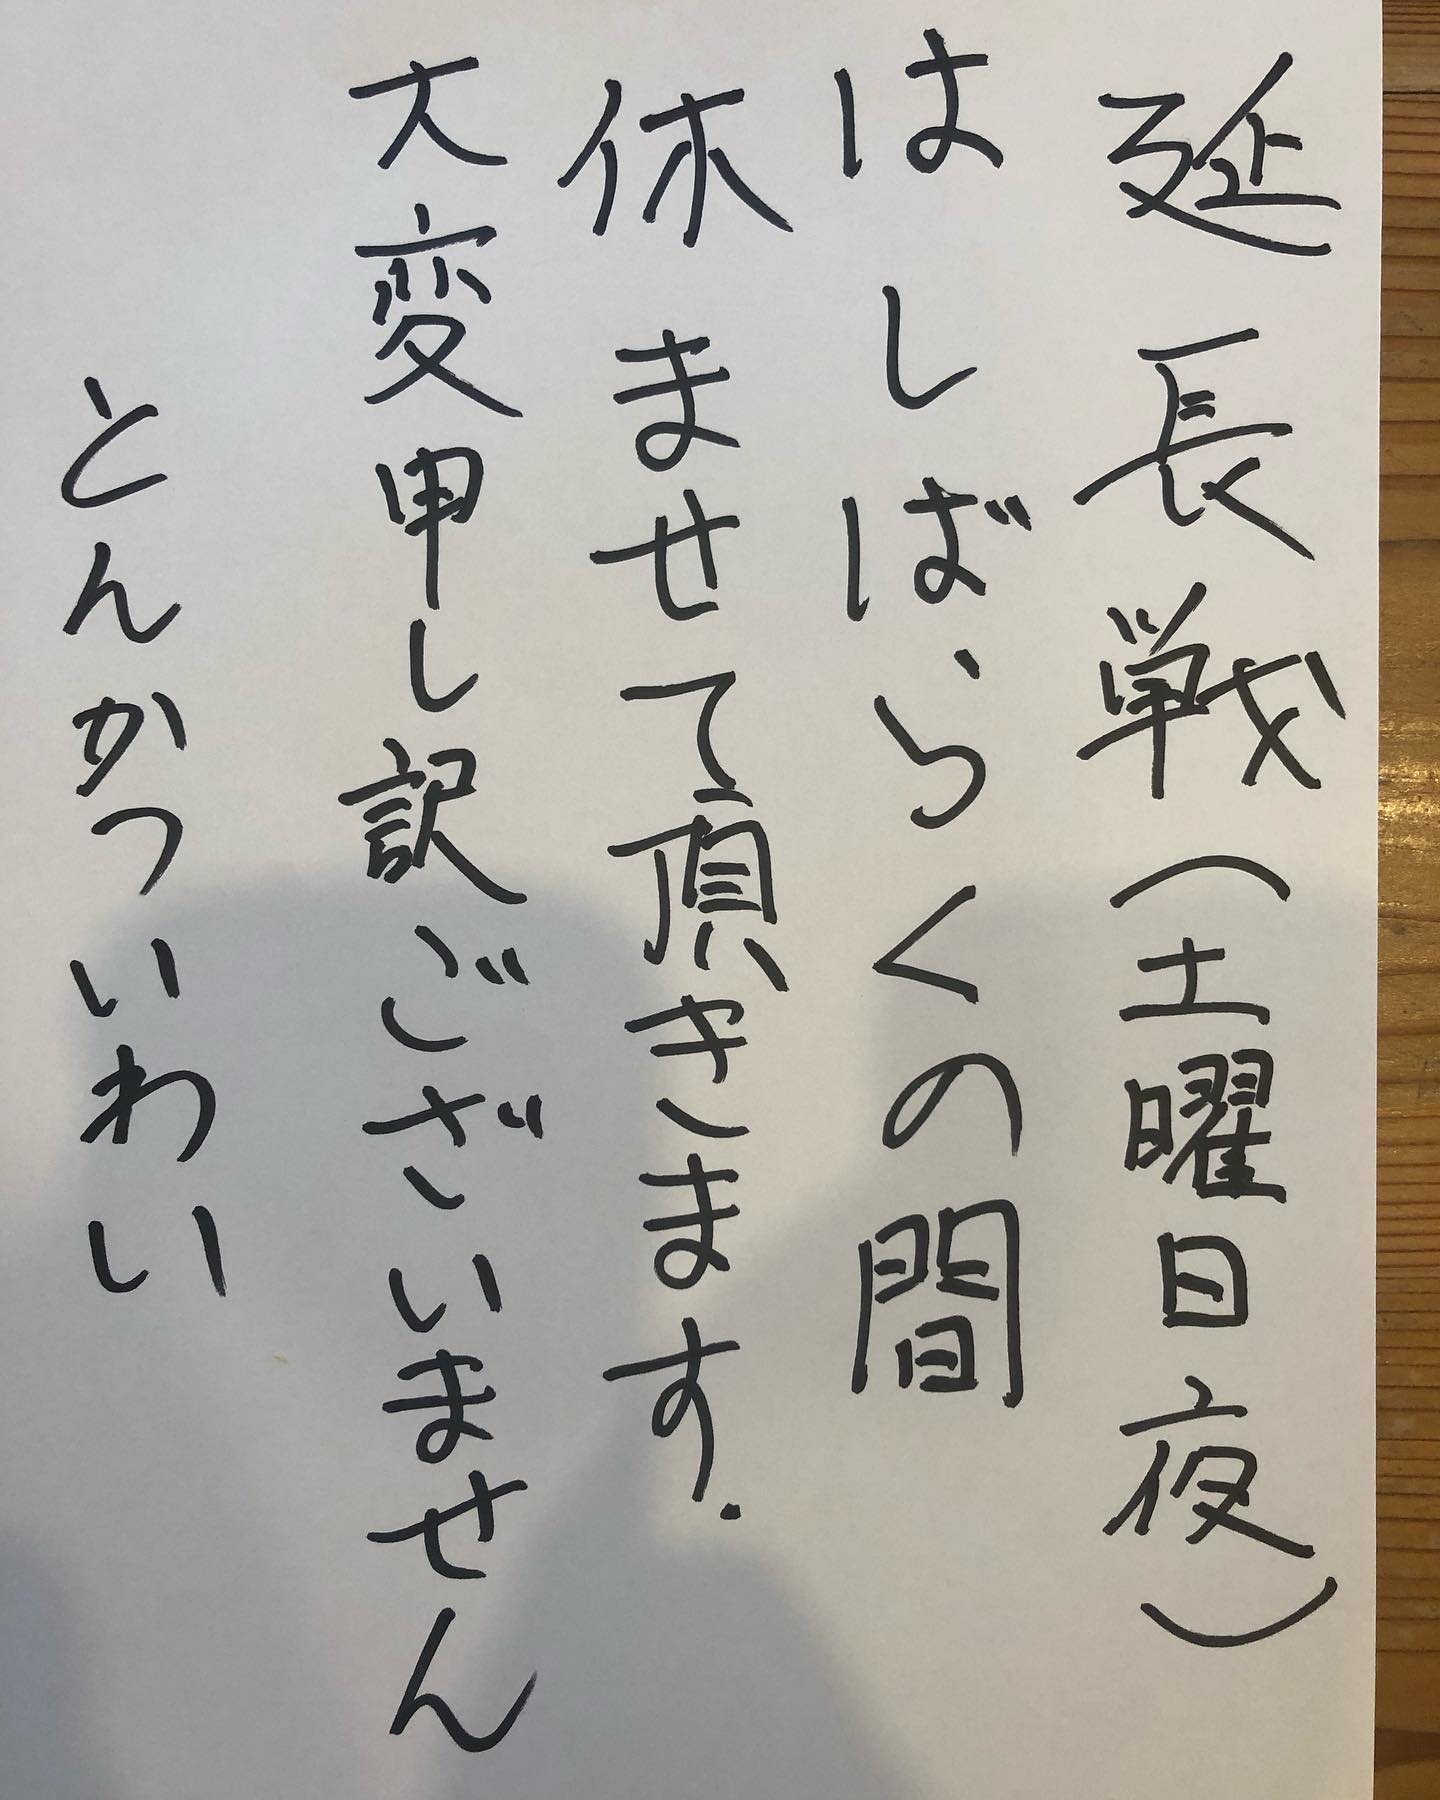 延長戦(土曜日夜)
はしばらくの間
休ませて頂きます.
大変申し訳ございません
とんかついわい